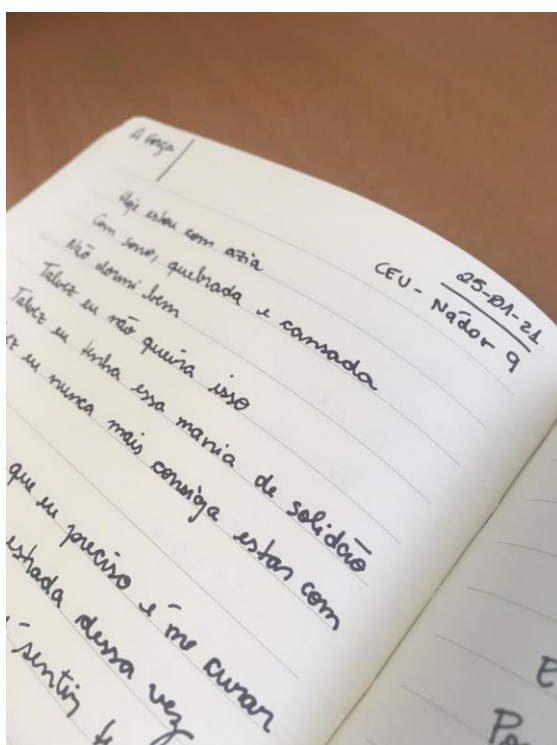 A força
25-01-21
CEU - Nádor 9
Hoje estou com azia
Com sono, quebrada e cansada
Não dormi bem
Talvez eu não queira isso
Talvez eu tenha essa mania de solidão
eu nunca mais consiga estar com
que eu preciso é me curar
dessa vez
sentir
E